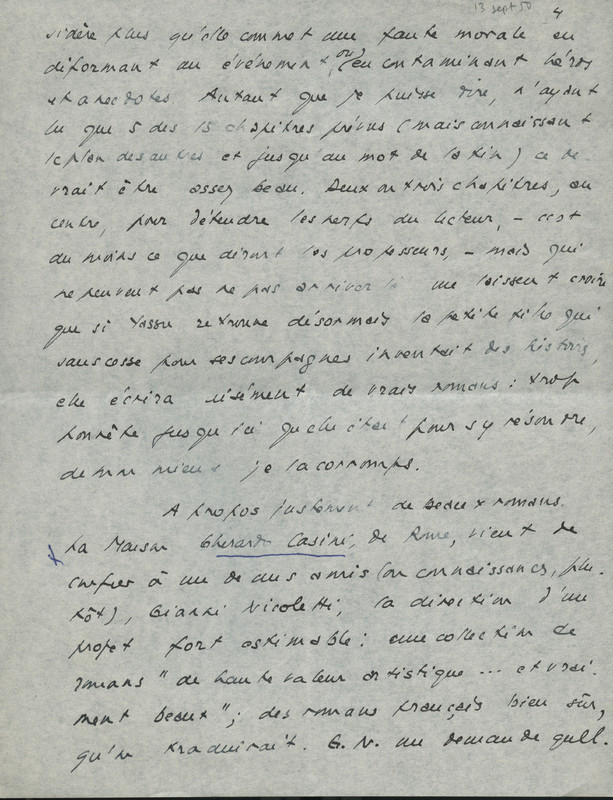 13 sept 50
4
sidère plus qu'elle commet une faute morale en
déformant un événement, ou en contaminant héros
et anecdotes. Autant que je puisse dire, n'ayant
lu que 5 des 15 chapitres prévus (mais connaissant
le plan des autres et jusqu'au mot de la fin) ce de-
vrait être assez beau. Deux ou trois chapitres, au
centre, pour détendre les nerfs du lecteur, – c'est
du moins ce que diront les professeurs, – mais qui
ne peuvent pas ne pas arriver là me laissent croire
que si Yassu retrouve désormais la petite fille qui
sans cesse pour ses compagnes inventait des histoires,
elle écrira aisément de vrais romans : trop
honnête jusqu'ici qu'elle était pour s'y résoudre,
de mon mieux je la corromps.
A propos justement de beaux romans.
La Maison Gherardo Casini, de Rome, vient de
confier à un de mes amis (ou connaissances, plu-
tôt), Gianni Nicoletti, la direction d'un
projet fort estimable : une collection de
romans "de haute valeur artistique ... et vrai-
ment beaux" ; des romans français bien sûr,
qu'on traduirait. G. N. me demande quell-